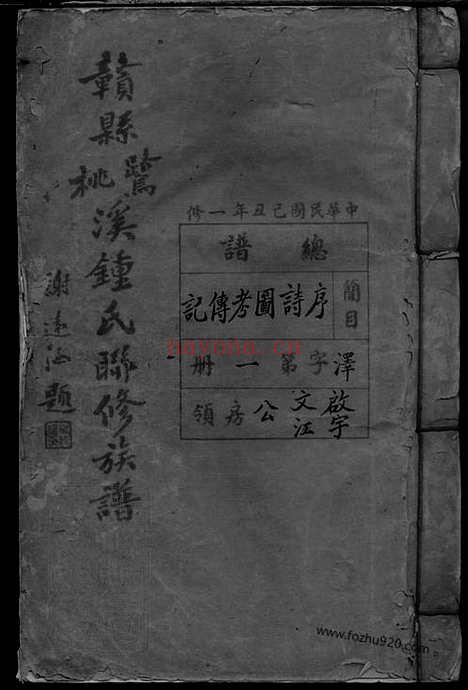 中華民國己丑年一修
總譜
簡目
序詩圖考傳記
澤字第一册
啟宇
文汪
公房領
贛縣鷺桃溪鍾氏聯修族譜
謝遠涵題
nayona.cn
www.fozhu920.com